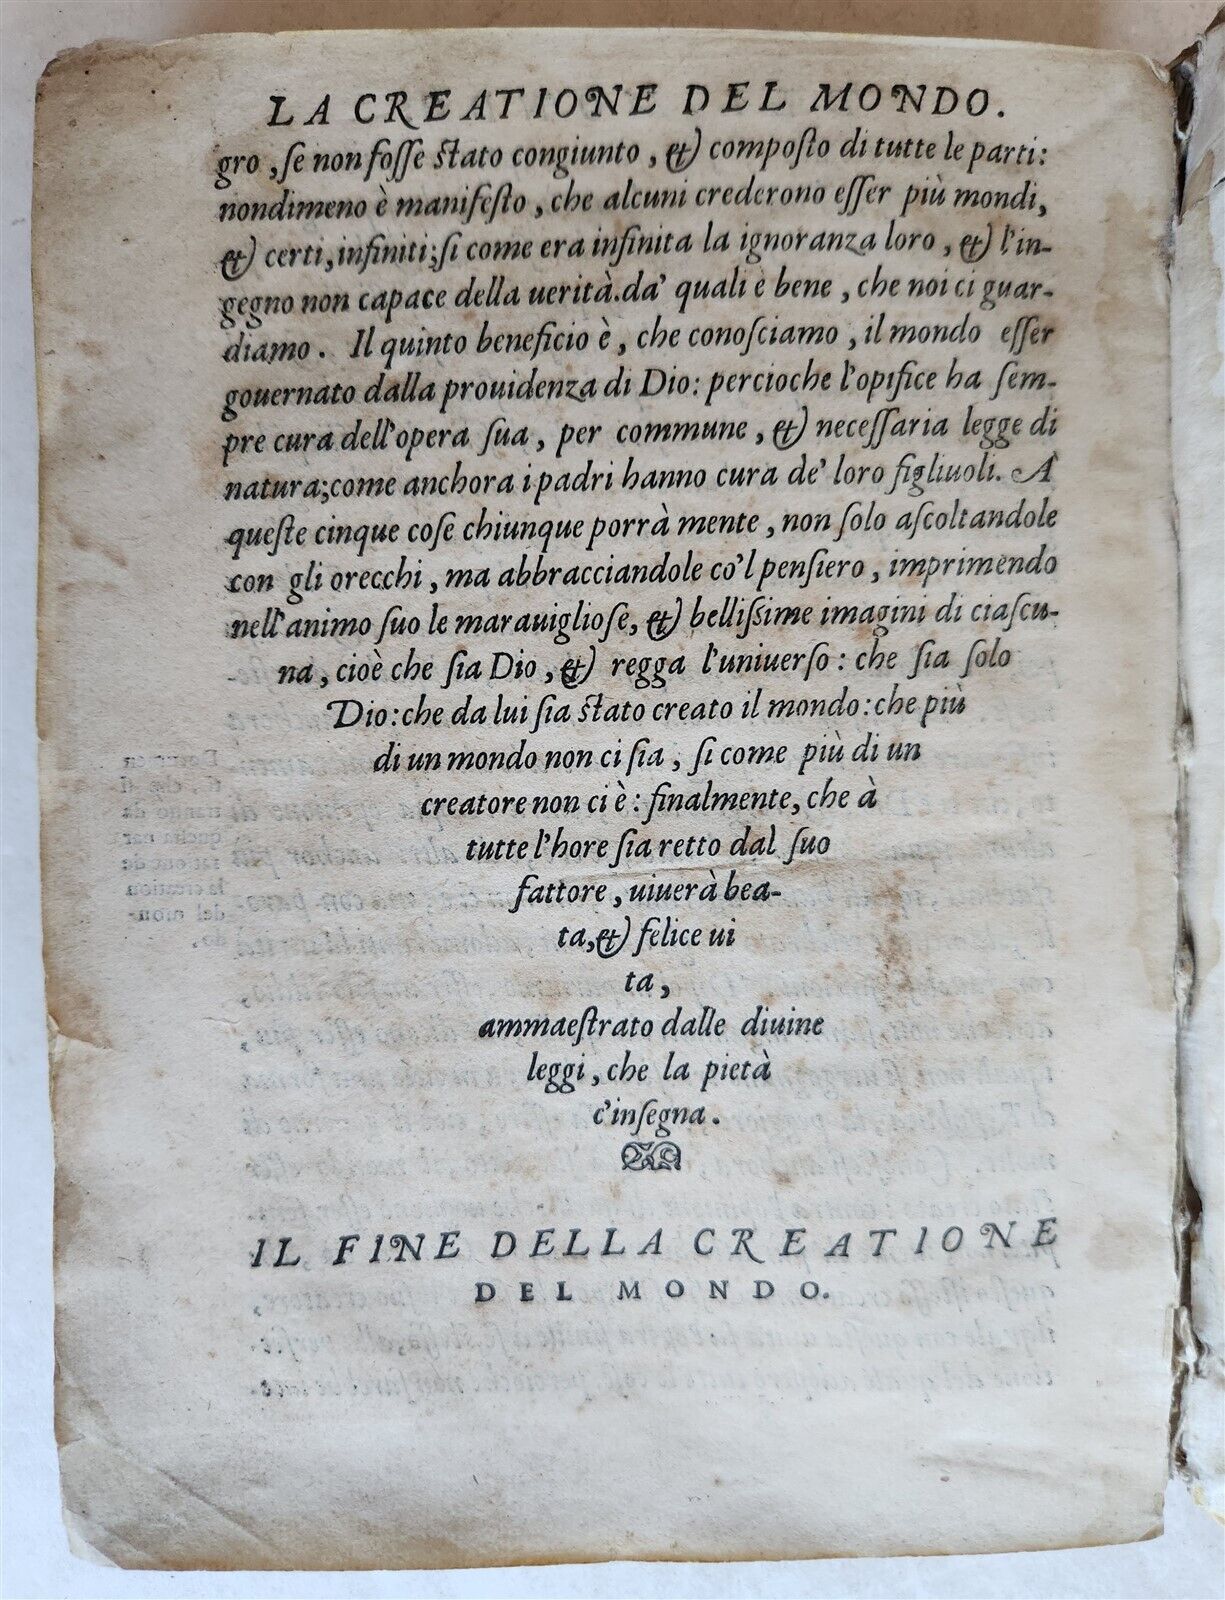 LA CREATIONE DEL MONDO.
gro, se non fosse stato congiunto, & composto di tutte le parti:
nondimeno è manifesto, che alcuni crederono esser più mondi,
& certi, infiniti; si come era infinita la ignoranza loro, & l'in-
gegno non capace della uerità. da' quali è bene, che noi ci guar-
diamo. Il quinto beneficio è, che conosciamo, il mondo esser
gouernato dalla prouidenza di Dio: percioche l'opifice ha sem-
pre cura dell'opera sua, per commune, & necessaria legge di
natura; come anchora i padri hanno cura de' loro figliuoli. A
queste cinque cose chiunque porrà mente, non solo ascoltandole
con gli orecchi, ma abbracciandole co'l pensiero, imprimendo
nell'animo suo le marauigliose, & bellissime imagini di ciascu-
na, cioè che sia Dio, & regga l'uniuerso: che sia solo
Dio: che da lui sia stato creato il mondo: che più
di un mondo non ci sia, si come più di un
creatore non ci è: finalmente, che à
tutte l'hore sia retto dal suo
fattore, uiuerà bea-
ta, & felice ui
ta,
ammaestrato dalle diuine
leggi, che la pietà
c'insegna.
IL FINE DELLA CREATIONE
DEL MONDO.